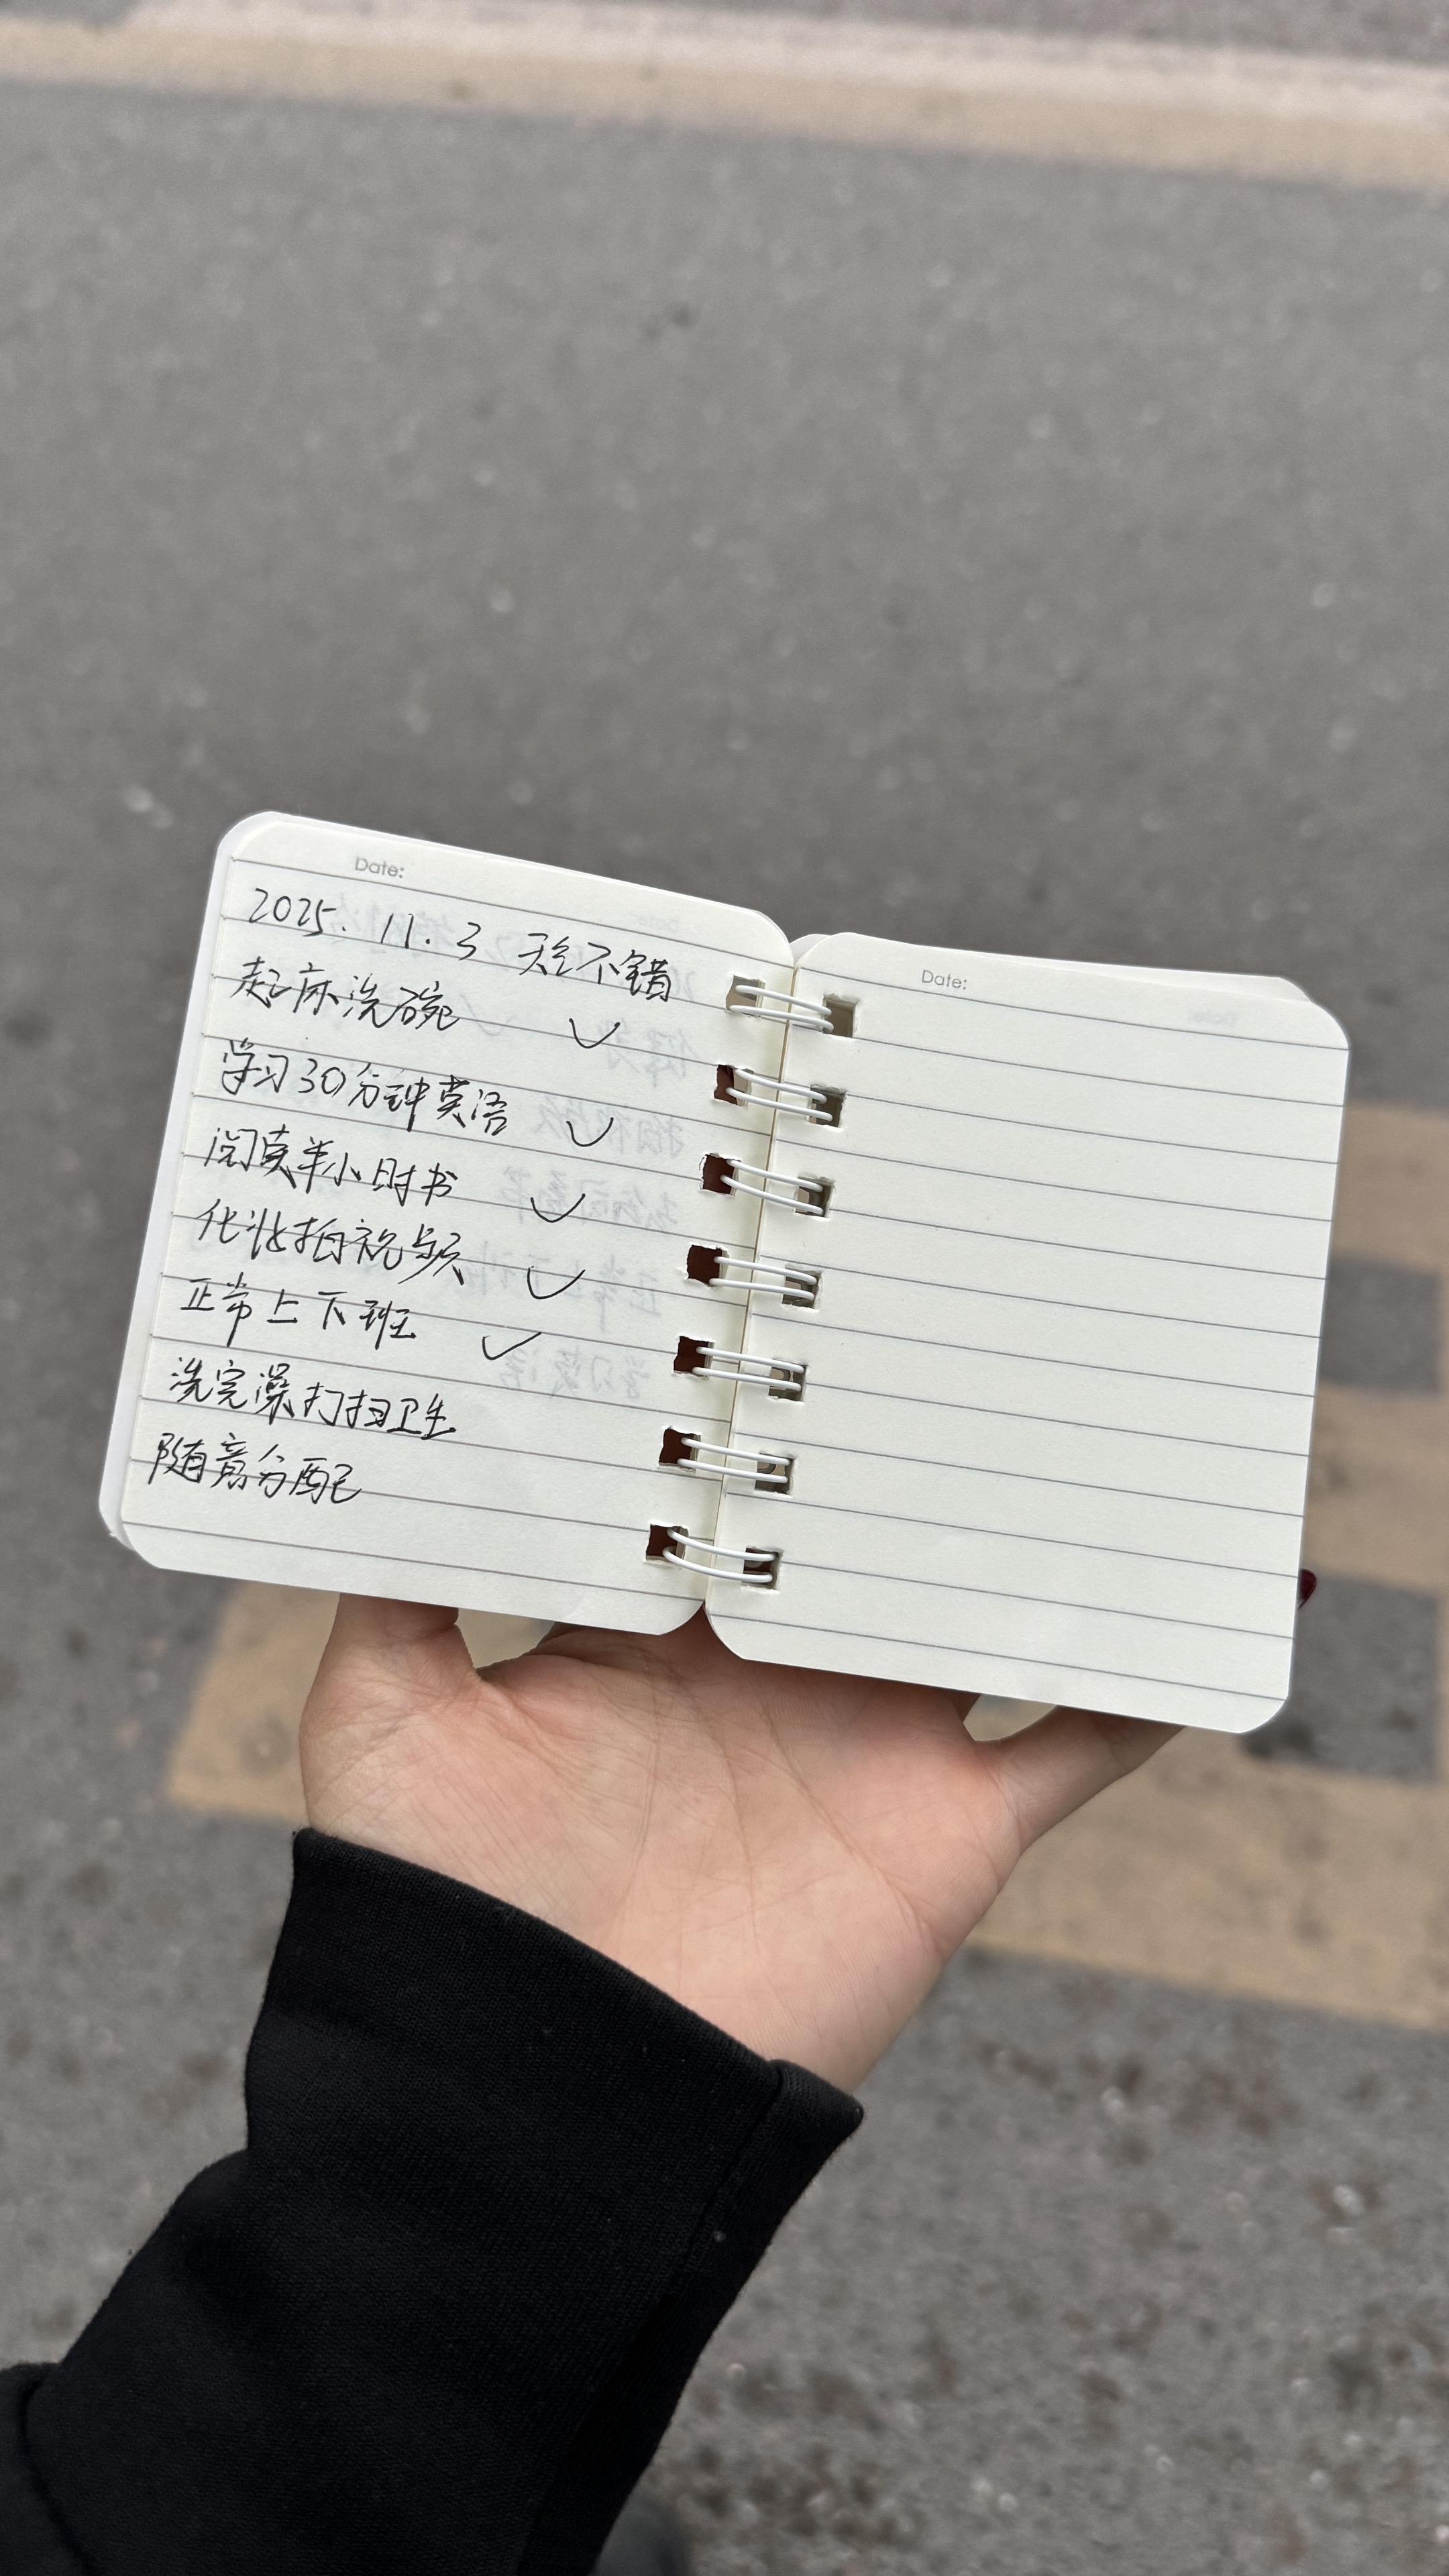 Date:
2025. 11. 3 天气不错
起床洗碗 ✓
学习30分钟英语 ✓
阅读半小时书 ✓
化妆拍视频 ✓
正常上下班 ✓
洗完澡打扫卫生
随意分配
Date: